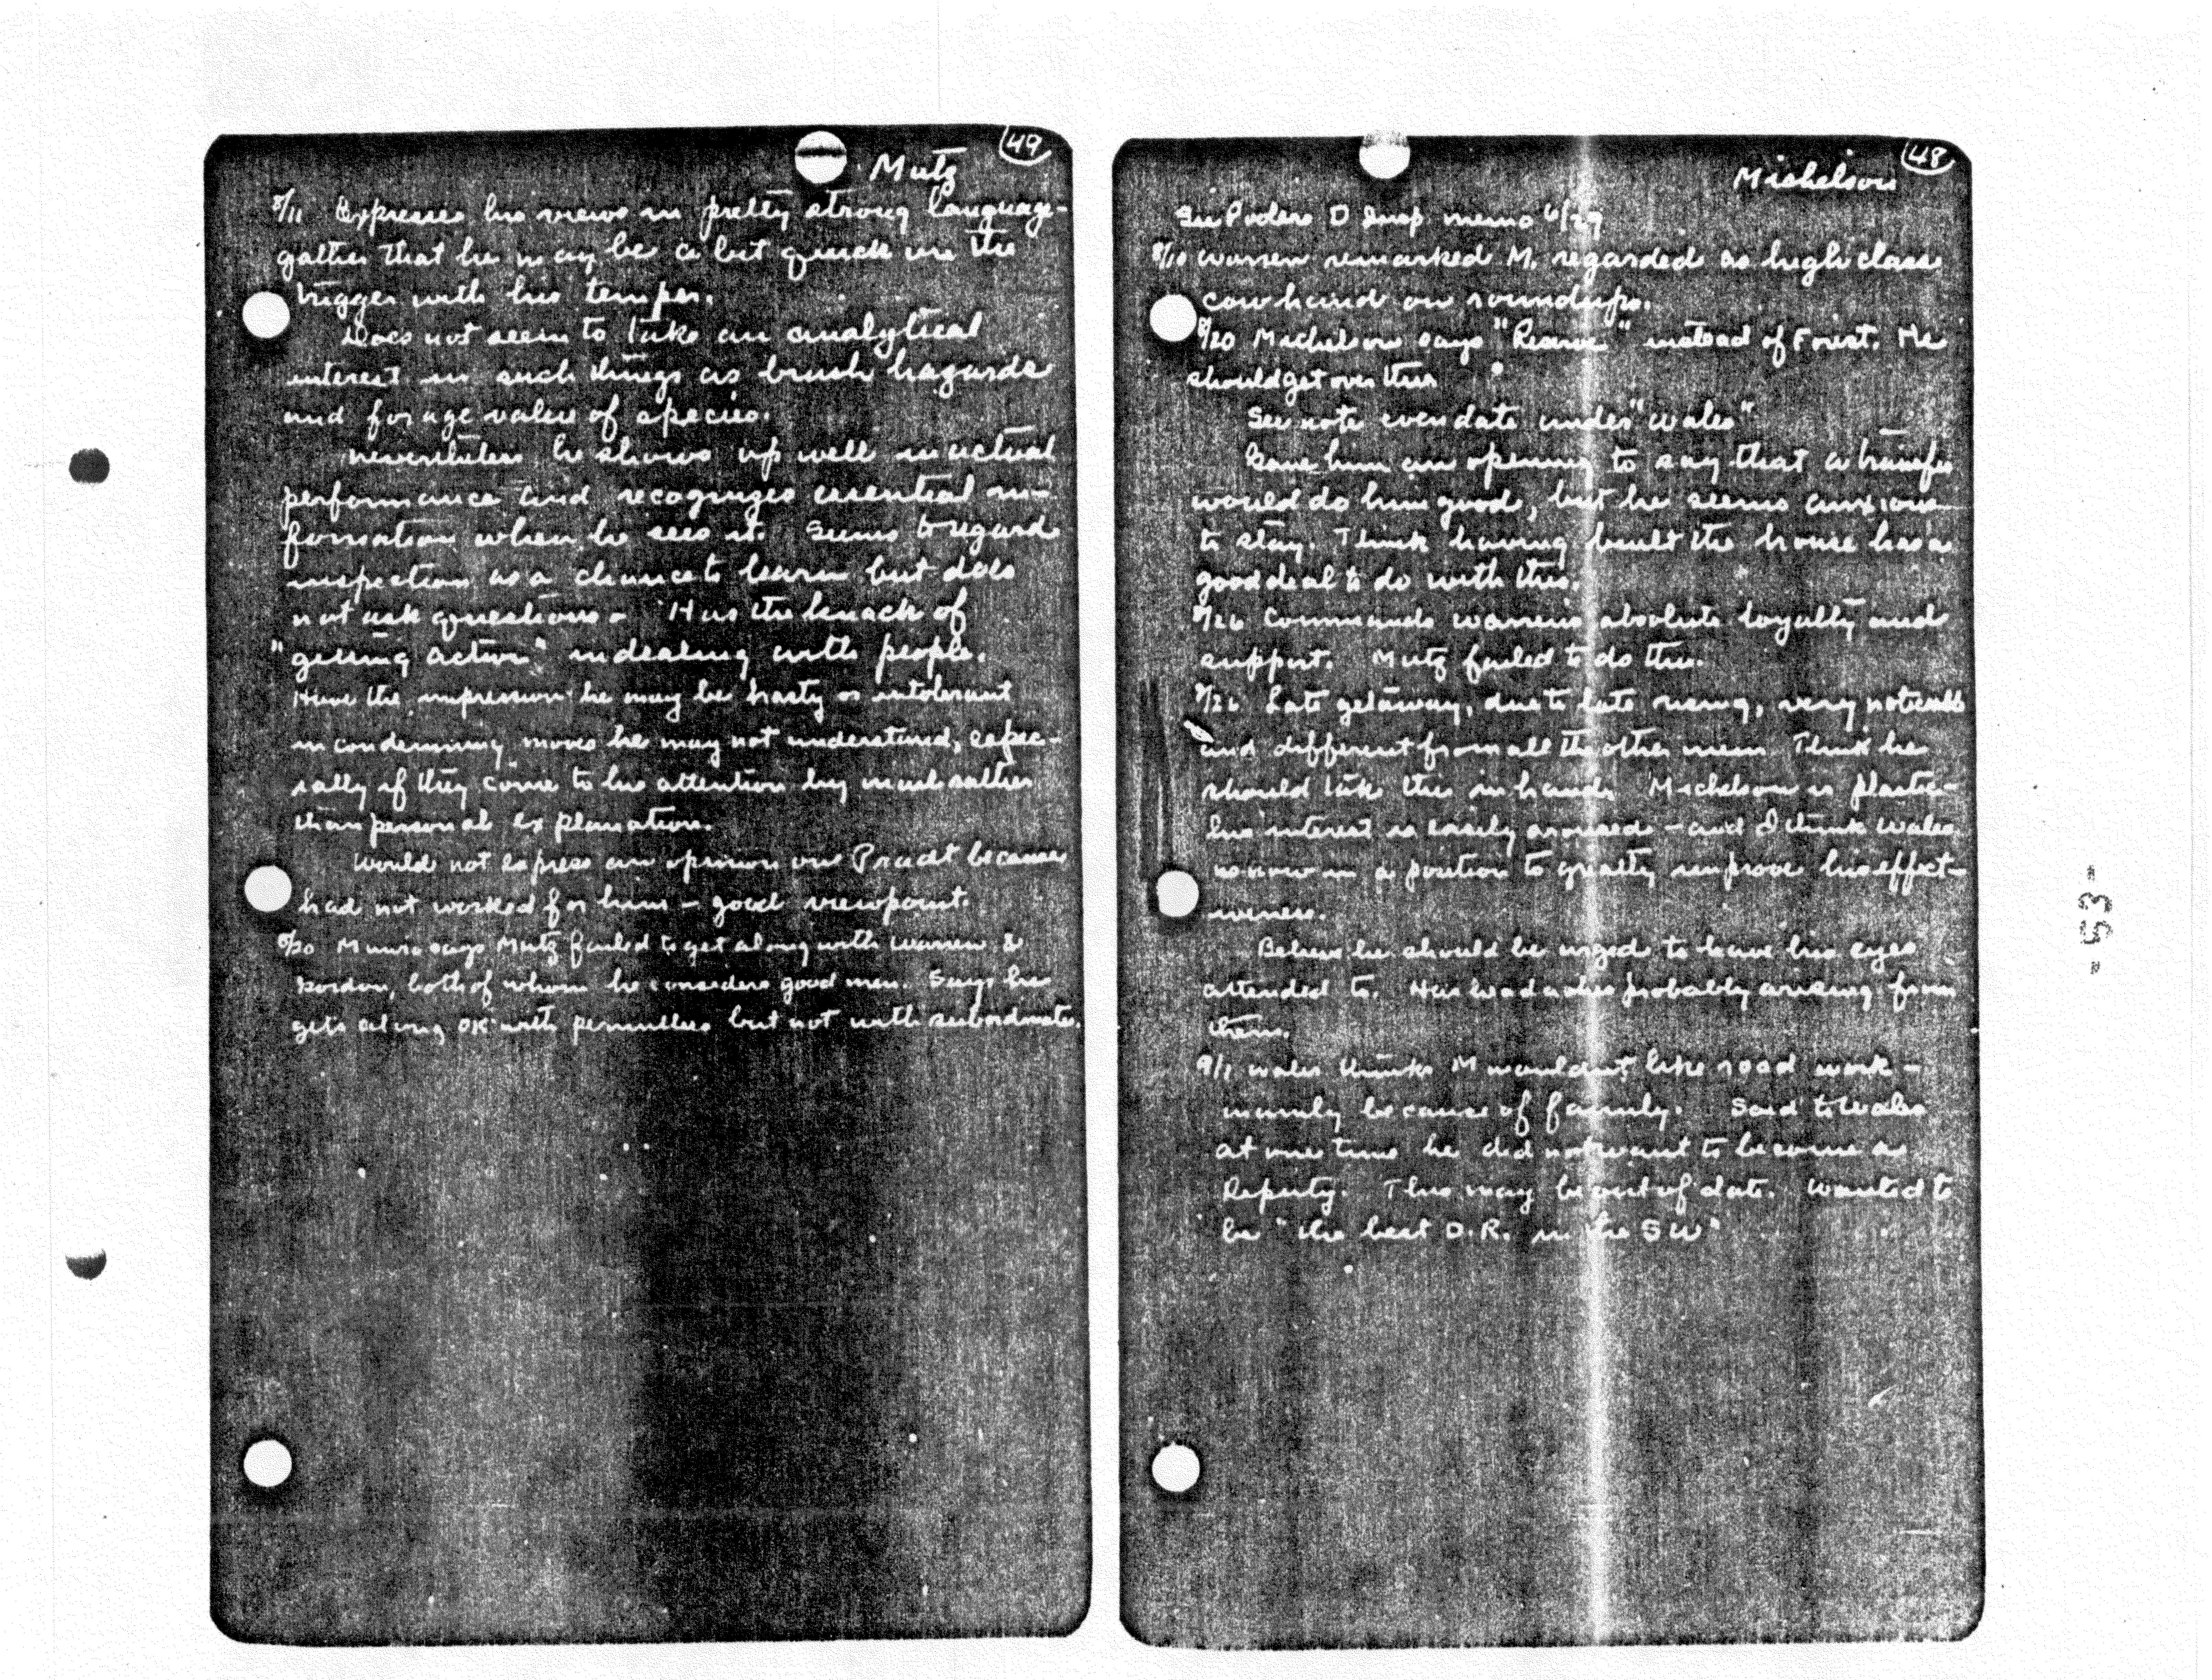 49
Mutz
8/11 Expresses his views in pretty strong language-
gather that he may be a bit quick on the
trigger with his temper.
Does not seem to take an analytical
interest in such things as brush hazards
and forage value of species.
Nevertheless he shows up well in actual
performance and recognizes essential in-
formation when he sees it. Seems to regard
inspection as a chance to learn but does
not ask questions. Has the knack of
"getting action" in dealing with people.
Have the impression he may be hasty or intolerant
in condemning moves he may not understand, espec-
ially if they come to his attention by mail rather
than personal explanation.
Would not express an opinion on Pradt because
had not worked for him - good viewpoint.
8/20 Munro says Mutz failed to get along with Warren &
Gordon, both of whom he considers good men. Says he
gets along OK with permittees but not with subordinates.
48
Michelson
See D Insp memo 6/29
8/10 Warren remarked M. regarded as high class
cow hand on roundups.
8/20 Michelson says "Reserve" instead of Forest. He
should get over this
See note even date under "Wales"
Gave him an opening to say that a transfer
would do him good, but he seems anxious
to stay. Think having built the house has a
good deal to do with this.
8/26 Commands Warren's absolute loyalty and
support. Mutz failed to do this.
8/26 Late getaway, due to late rising, very noticeable
and different from all the other men. Think he
should take this in hand. Michelson is plastic-
his interest is easily aroused - and I think Wales
is now in a position to greatly improve his effect-
iveness.
Believe he should be urged to have his eyes
attended to. Has headaches probably arising from
them.
9/1 Wales thinks M wouldn't like road work -
mainly because of family. Said to Wales
at one time he did not want to become a
Deputy. This may be out of date. Wanted to
be "the best D.R. in the SW"
-53-